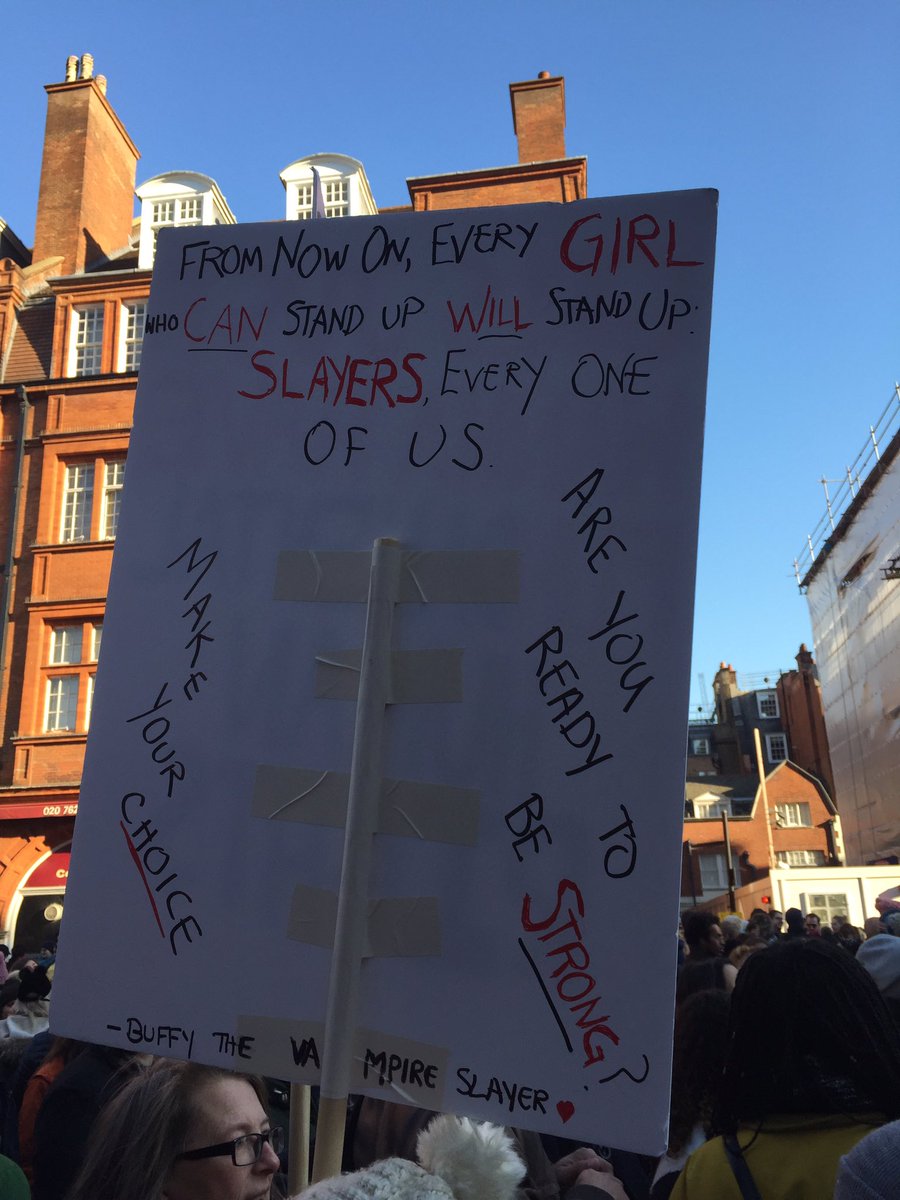 FROM NOW ON, EVERY GIRL
WHO CAN STAND UP WILL STAND UP.
SLAYERS, EVERY ONE
OF US.
MAKE
YOUR
CHOICE
ARE YOU
READY TO
BE STRONG?
- BUFFY THE VAMPIRE SLAYER ♥
020 762